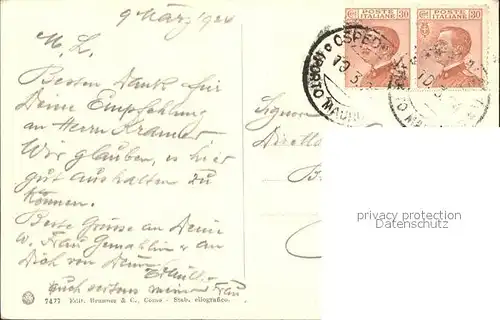 9 März 1924
M. L.
Besten Dank für
Deine Empfehlung
an Herrn Kramer
Wir glauben, es hier
gut aushalten zu
können.
Beste Grüsse an Deine
w. Frau Gemahlin u. an
Dich von Deinem
auch seitens meiner Frau
7477 Edit. Brunner & C., Como - Stab. eliografico.
POSTE ITALIANE
30 30
POSTE ITALIANE
30 30
OSPEDAL
(PORTO MAUR
10.3.
Signor
privacy protection
Datenschutz